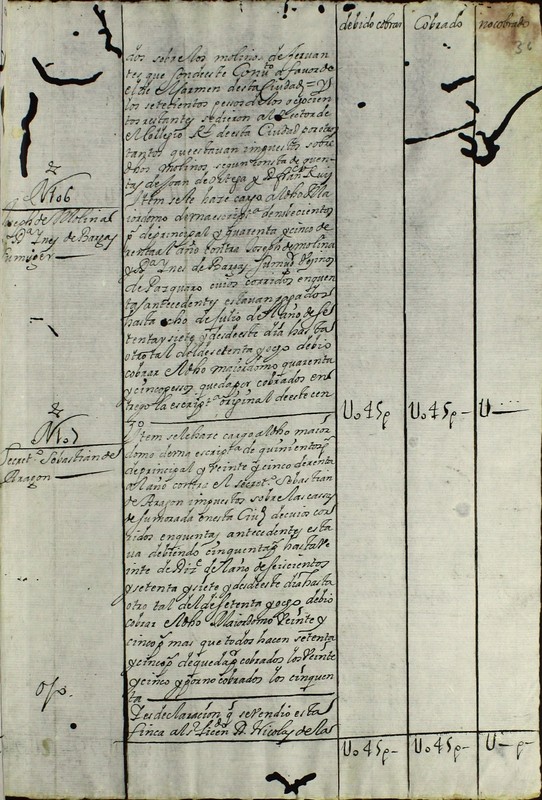 debido cobrar Cobrado no cobrado
36
dos sobre los molinos de
tes que son deste Conu.to a favor de
el de Carmen desta Ciudad = y
los setecientos pesos de los ochocien
tos restantes se dieron al Retor de
desta Ciudad por
tantos que estavan impuestos sobre
dhos Molinos segun consta de quen
tas de Joan de Ortega y
N.o 6
Joseph de Molina
y D.a Ynes de Bargas
su muger
Ytem se le haze cargo al dho Ma
iordomo de una escript.a de nobecientos
p.s de principal y quarenta y cinco de
renta al año contra Joseph de molina
y D.a Ynes de Bargas su mug.r Vezinos
de Pazquaro cuios corridos en quen
tas antecedentes estavan pagados
hasta ocho de Julio de el año de se
tenta y siete y desde este dia hasta
otro tal del de setenta y ocho debio
cobrar el dho maiordomo quarenta
y cinco pessos quedā por cobrados en
trego la escript.a original de este cen
so
U045p U045p U
N.o 7
Secret.o Sebastian de
Aragon
Ytem se le haze cargo al dho maior
domo de una escript.a de quinientos p.s
de principal y veinte y cinco de renta
al año contra el secret.o Sebastian
de Aragon impuestos sobre las cassas
de su morada en esta Ciu.d de cuios cor
ridos en quentas antecedentes esta
va debiendo cinquenta p.s hasta ve
inte de Diz.e del año de seiscientos
y setenta y siete y desde este dia hasta
otro tal del de setenta y ocho debio
cobrar el dho Maiordomo Veinte y
cinco p.s mas que todos hacen setenta
y cinco p.s de quedā p.r cobrados los Veinte
y cinco y por no cobrados los cinquen
ta
Y es declaracion q se vendio esta
finca al S.r Licen.do D. Nicolas de las
U045p U045p U p